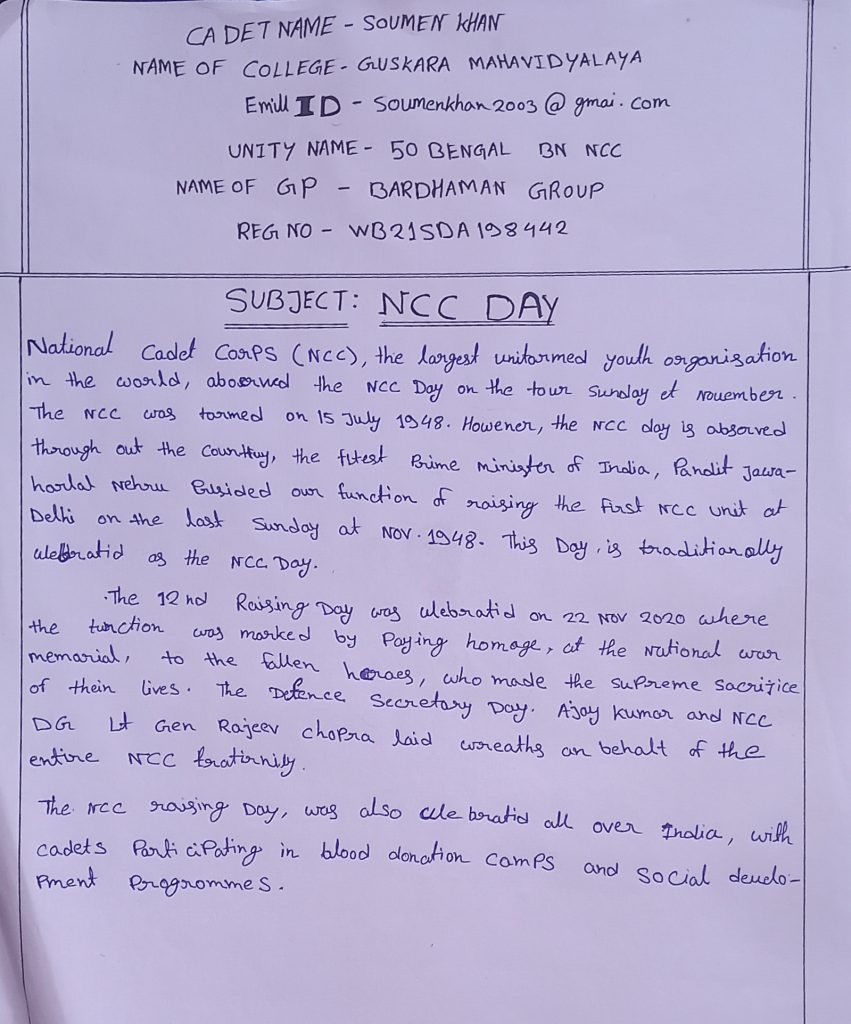 CADET NAME - SOUMEN KHAN
NAME OF COLLEGE - GUSKARA MAHAVIDYALAYA
Emill ID - Soumenkhan2003@gmai.com
UNITY NAME - 50 BENGAL BN NCC
NAME OF GP - BARDHAMAN GROUP
REG NO - WB21SDA198442
SUBJECT: NCC DAY
National Cadet Corps (NCC), the largest unitormed youth organisation
in the world, aboserved the NCC Day on the tour Sunday et November.
The NCC was tormed on 15 July 1948. Howener, the NCC day is absorved
through out the Counttuy, the fitest Prime minister of India, Pandit Jawa-
harlal Nehru Presided our function of raising the First NCC unit at
Delhi on the last Sunday at Nov. 1948. This Day, is traditianolly
celebratid as the NCC Day.
The 12nd Raising Day was celebratid on 22 Nov 2020 where
the tunction was marked by Paying homage, at the National war
memorial, to the fallen heraes, who made the supreme sacritice
of thein lives. The Defence Secretary Day. Ajay Kumar and NCC
DG Lt Gen Rajeev chopra laid wreaths on behalt of the
entire NCC fratirnity.
The NCC raising Day, was also celebratid all over India, with
cadets Participating in blood donation camps and social develo-
pment Programmes.